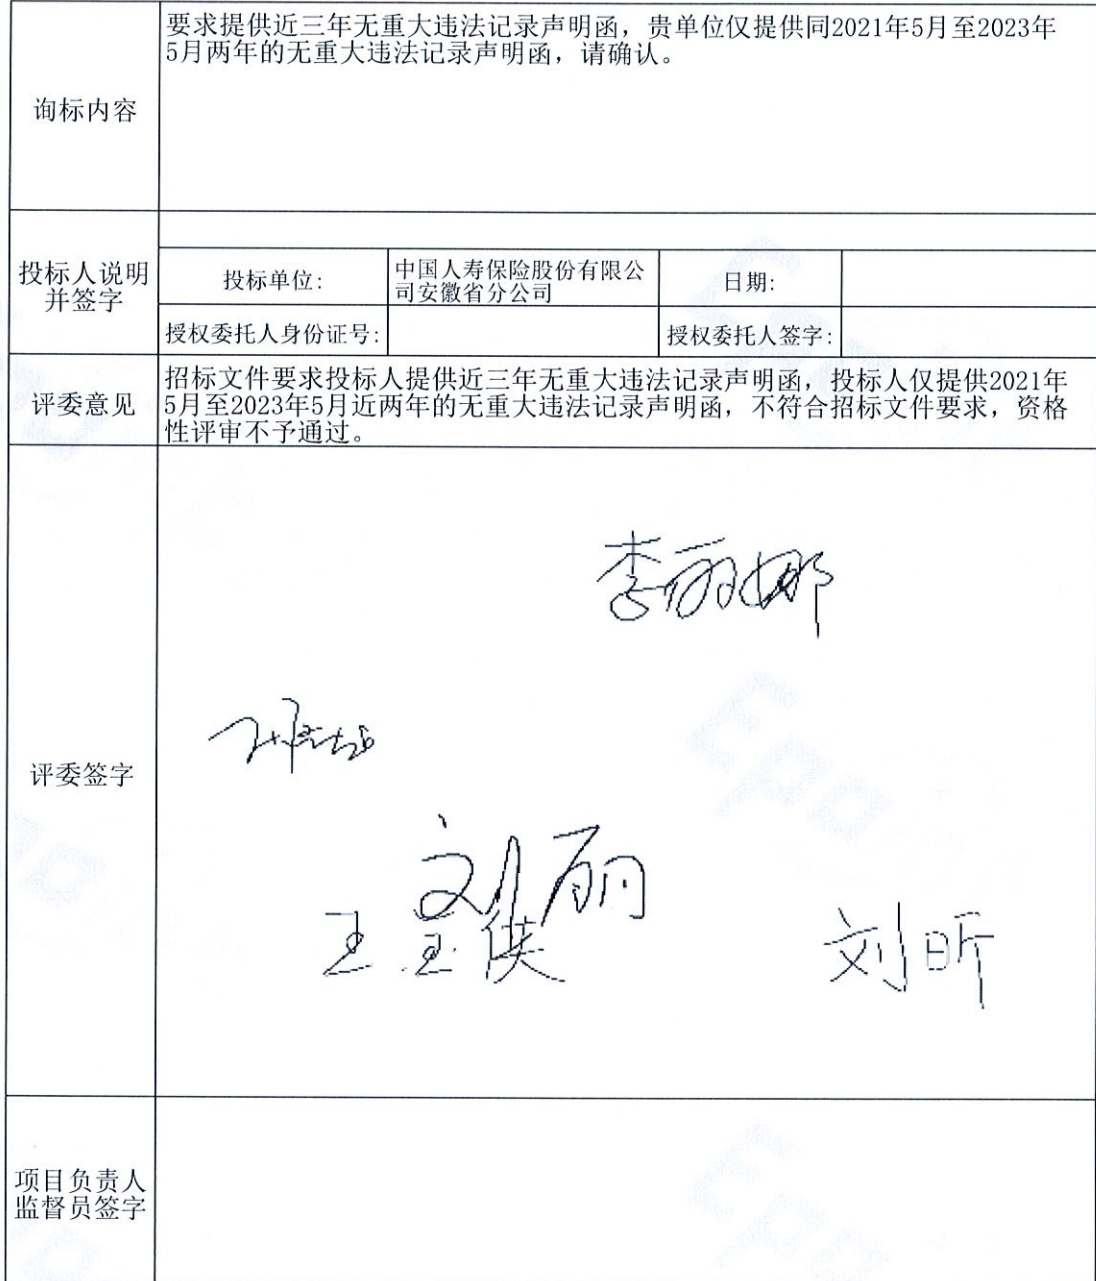 要求提供近三年无重大违法记录声明函，贵单位仅提供同2021年5月至2023年
5月两年的无重大违法记录声明函，请确认。
询标内容
投标人说明
并签字
投标单位:
中国人寿保险股份有限公
司安徽省分公司
日期:
授权委托人身份证号:
授权委托人签字:
评委意见
招标文件要求投标人提供近三年无重大违法记录声明函，投标人仅提供2021年
5月至2023年5月近两年的无重大违法记录声明函，不符合招标文件要求，资格
性评审不予通过。
李丽娜
评委签字
刘丽
王玉侠
刘昕
项目负责人
监督员签字